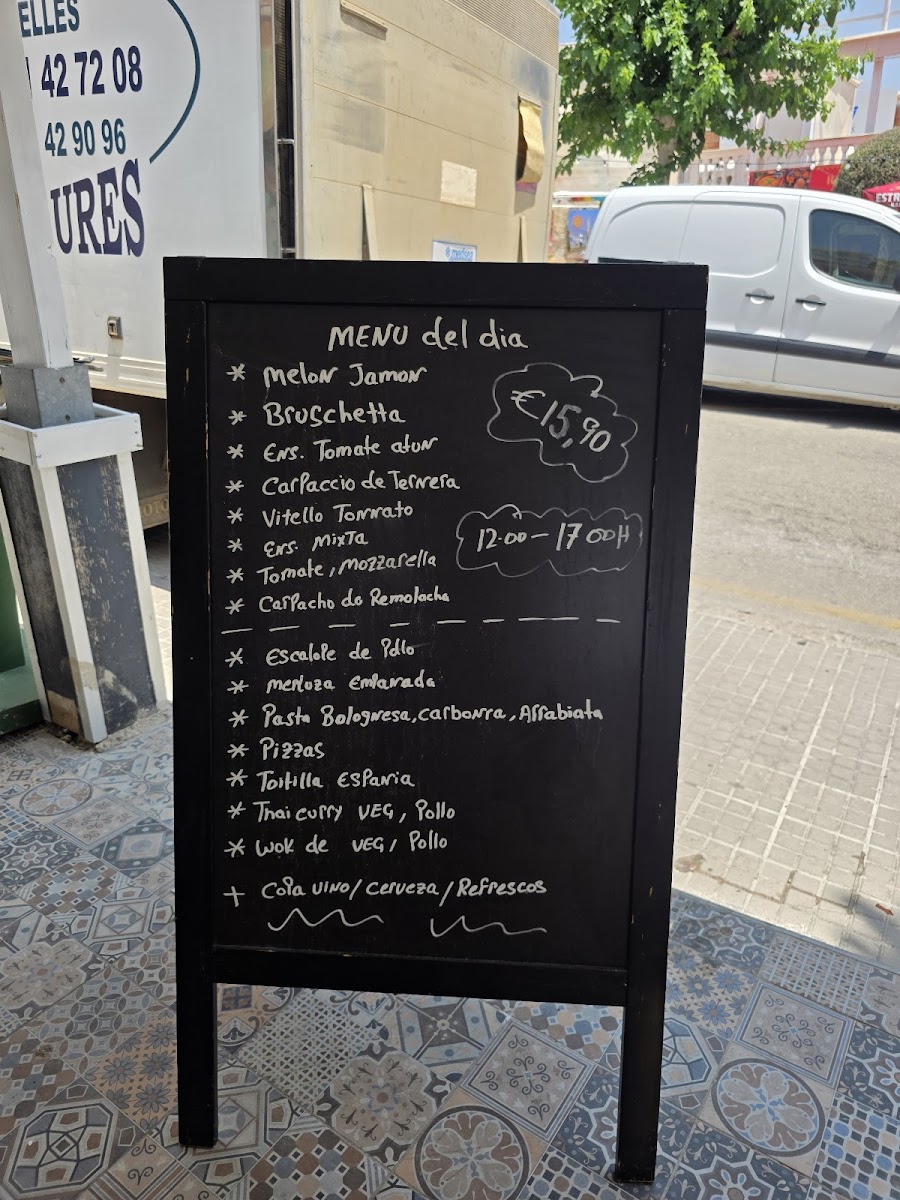 ELLES
42 72 08
42 90 96
URES
medipa
ESTR
MENU del dia
* Melon Jamon
* Bruschetta
€15,90
* Ens. Tomate atun
* Carpaccio de Ternera
* Vitello Tonnato
12.00 - 17 00H
* Ens. Mixta
* Tomate, Mozzarella
* Carpacho de Remolacha
* Escalope de Pollo
* Merluza Emparada
* Pasta Bolognesa, Carbonra, Arrabiata
* Pizzas
* Tortilla Espania
* Thai curry VEG, Pollo
* Wok de VEG, Pollo
+ Copa vino/Cerveza/Refrescos